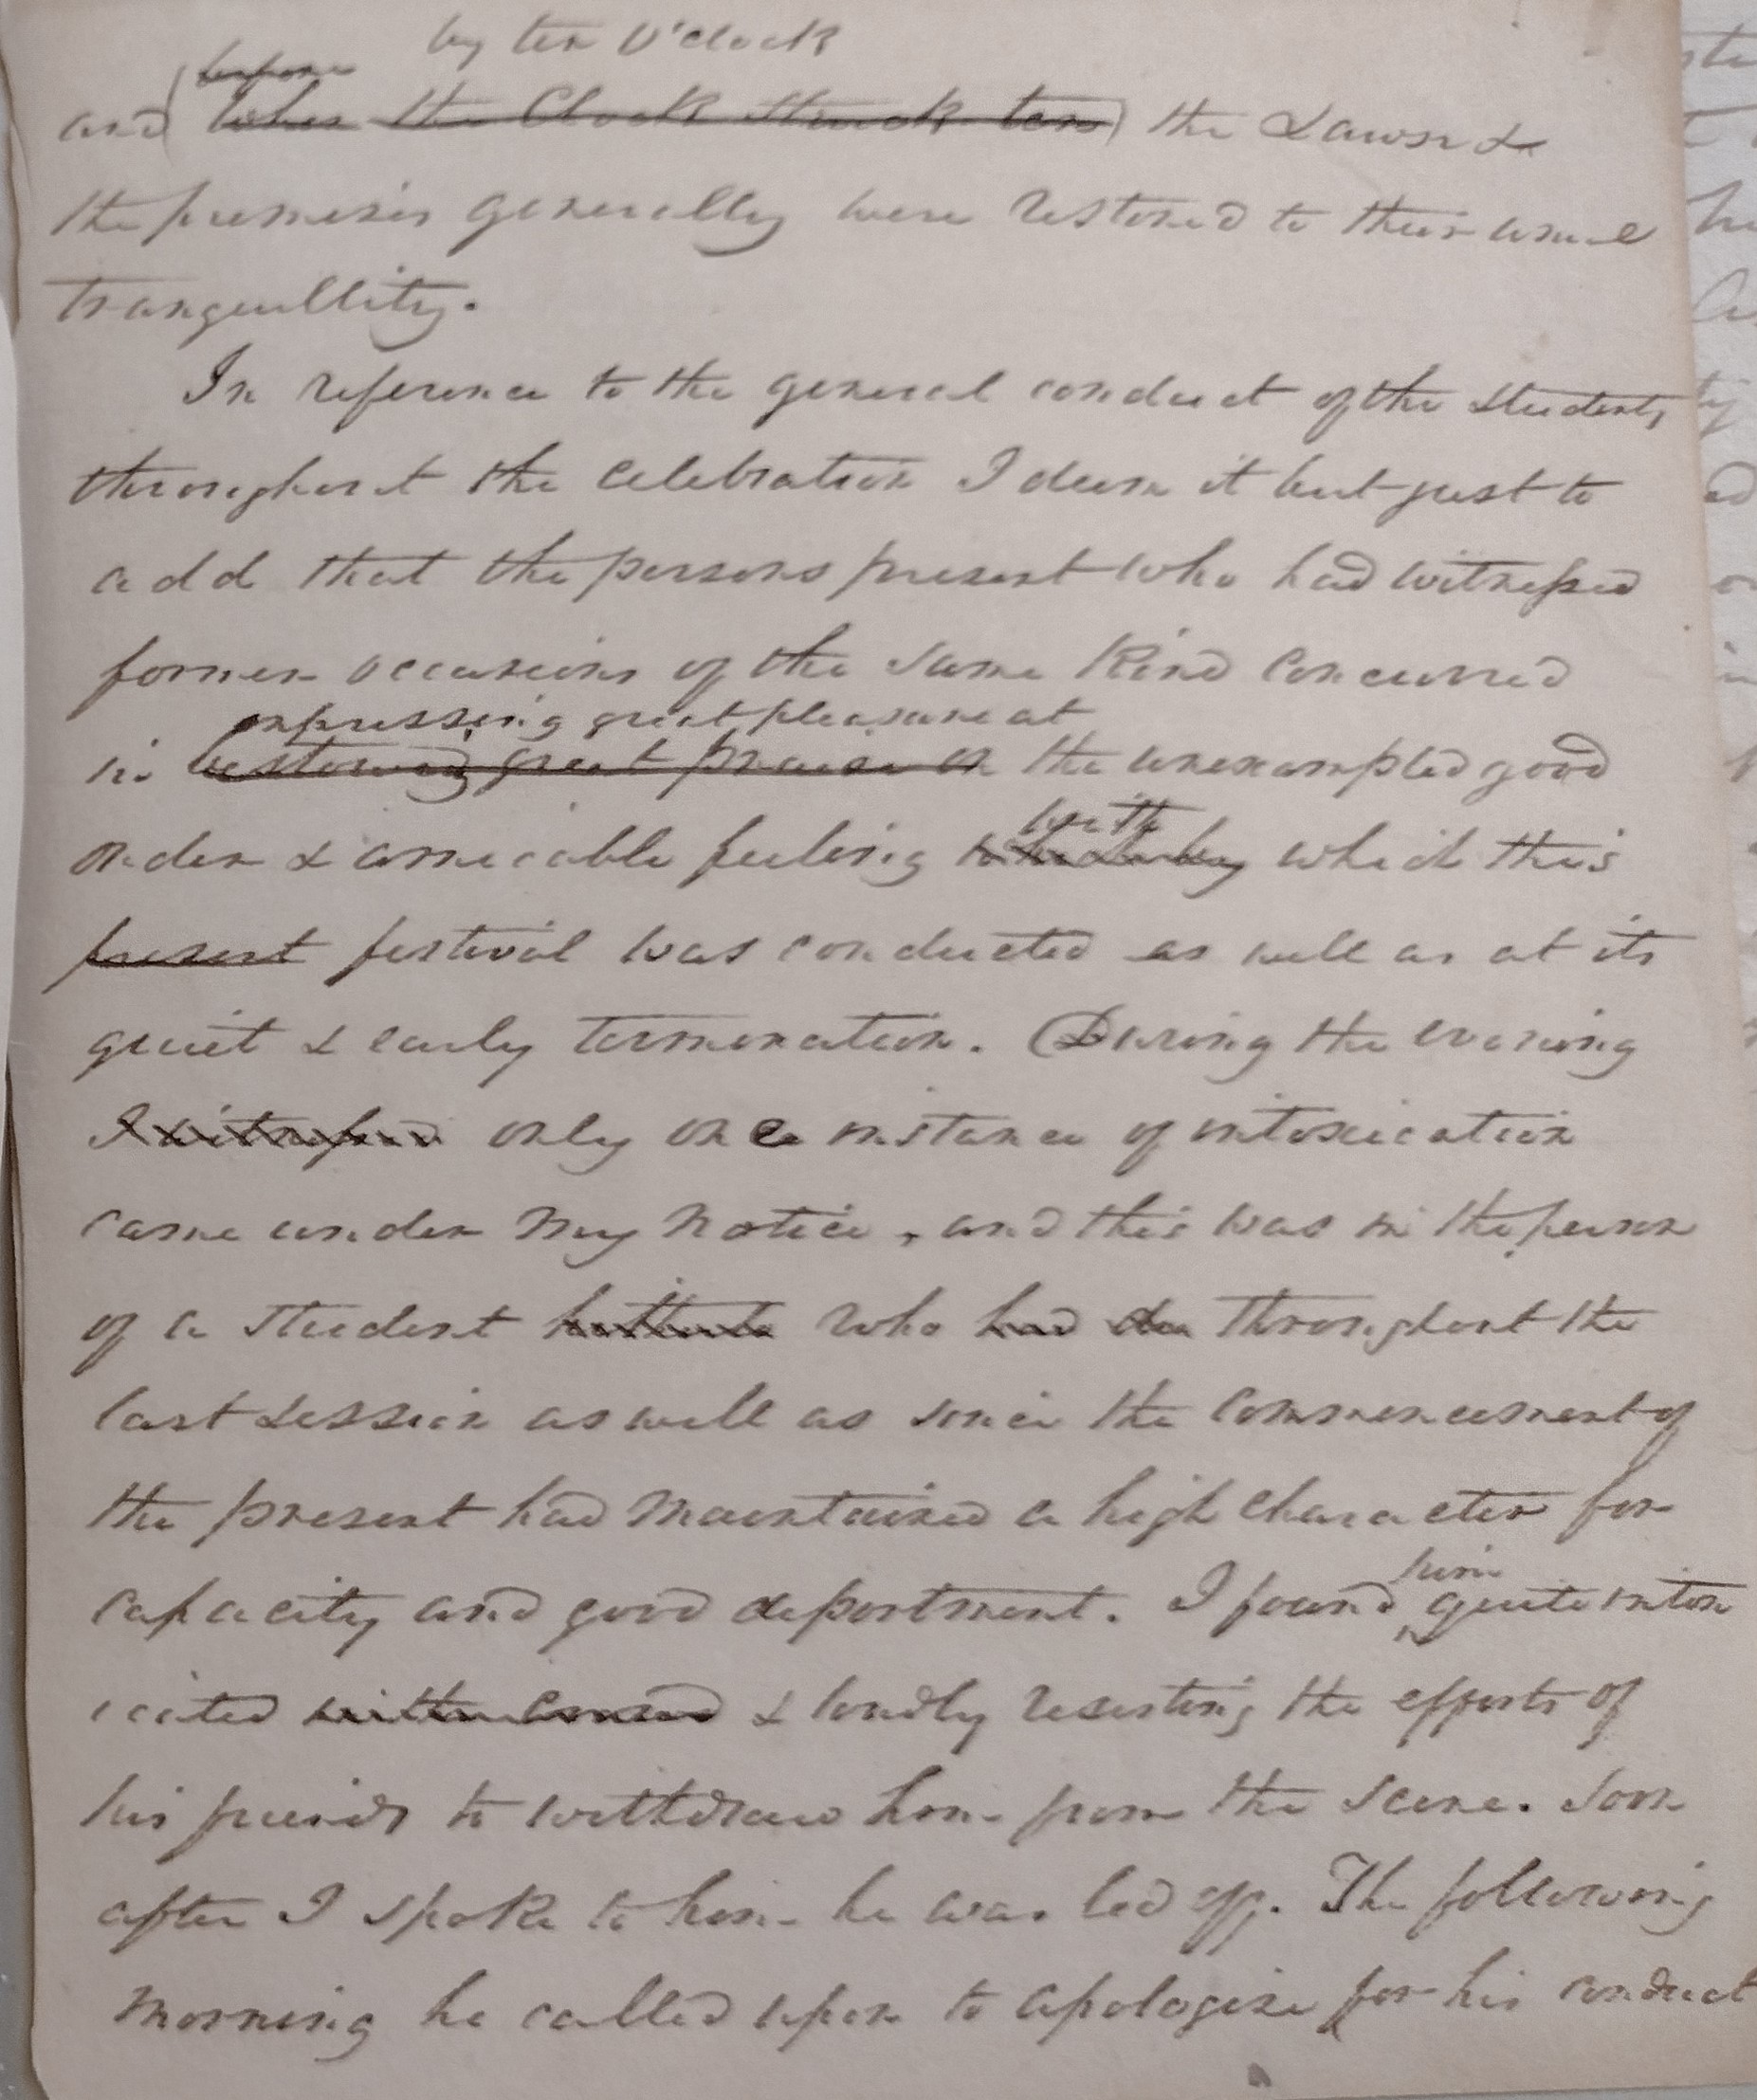 by ten O'clock
before
and when the Clock struck ten the Lawn &
the premises generally were restored to their usual
tranquillity.
In reference to the general conduct of the students
throughout the celebration I deem it but just to
add that the persons present who had witnessed
former occasions of the same kind concurred
expressing great pleasure at
in bestowing great praise on the unexampled good
with
order & amicable feeling which this
present festival was conducted as well as at its
quiet & early termination. (During the evening
I witnessed only one instance of intoxication
came under my notice, and this was in the person
of a student who had throughout the
last session as well as since the commencement of
the present had maintained a high character for
him
capacity and good deportment. I found quite intox
icated & loudly resisting the efforts of
his friends to withdraw him from the scene. Soon
after I spoke to him he was led off. The following
morning he called upon to apologize for his conduct